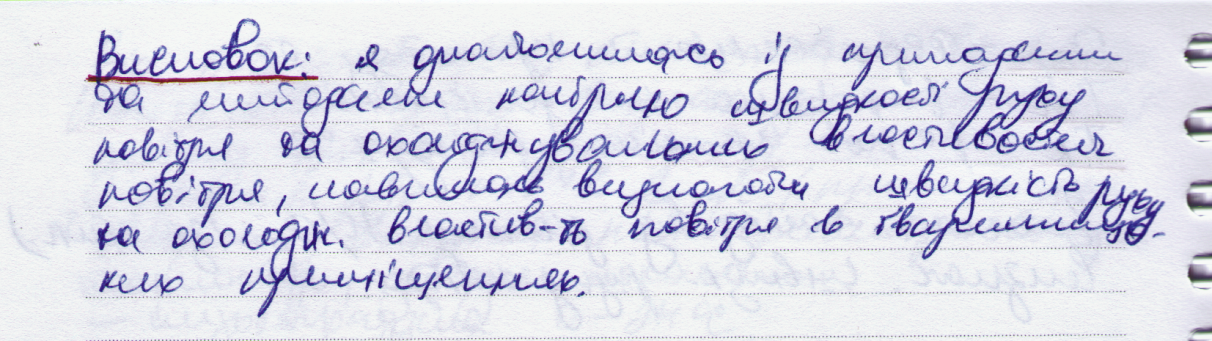 Висновок: я ознайомилась із приладами
та методами контролю швидкості руху
повітря та охолоджувальних властивостей
повітря, навчилась визначати швидкість руху
та охолодж. властив-ть повітря в тваринниць-
ких приміщеннях.